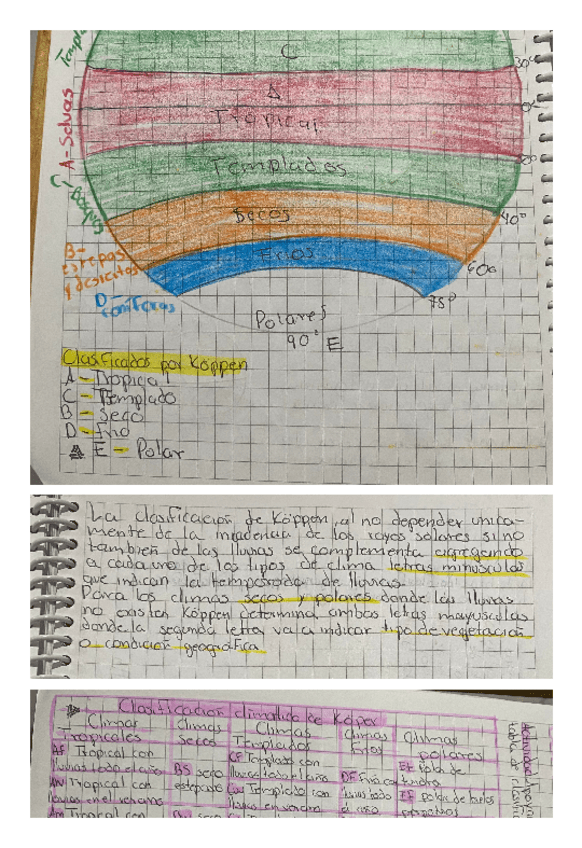 Templa
C
30°
A
0°
Tropical
A-Selvas
Templados
C-
Bosques
Secos
40°
B-
estepas
y desiertos
Frios
60°
D-
coníferas
75°
Polares
90° E
Clasificados por Köppen
A - Tropical
C - Templado
B - Seco
D - Frio
E - Polar
La clasificación de Köppen, al no depender unica-
mente de la insidencia de los rayos solares sino
tambien de las lluvias se complementa agregando
a cada uno de los tipos de clima letras minusculas
que indican la temporada de lluvias.
Para los climas secos y polares donde las lluvias
no existen Köppen determina ambas letras mayusculas
donde la segunda letra va a indicar tipo de vegetacion
o condicion geografica.
Clasificacion climatica de Köper
Climas Tropicales
Climas Secos
Climas Templados
Climas Frios
Climas polares
AF Tropical con
lluvias todo el año
AW Tropical con
lluvias en el verano
Am Tropical con
BS seco
estepario
CF Templado con
lluvias todo el año
CW Templado con
lluvias en verano
DF Frio con
lluvias todo
el año
ET Polar de
tundra
EF polar de hielos